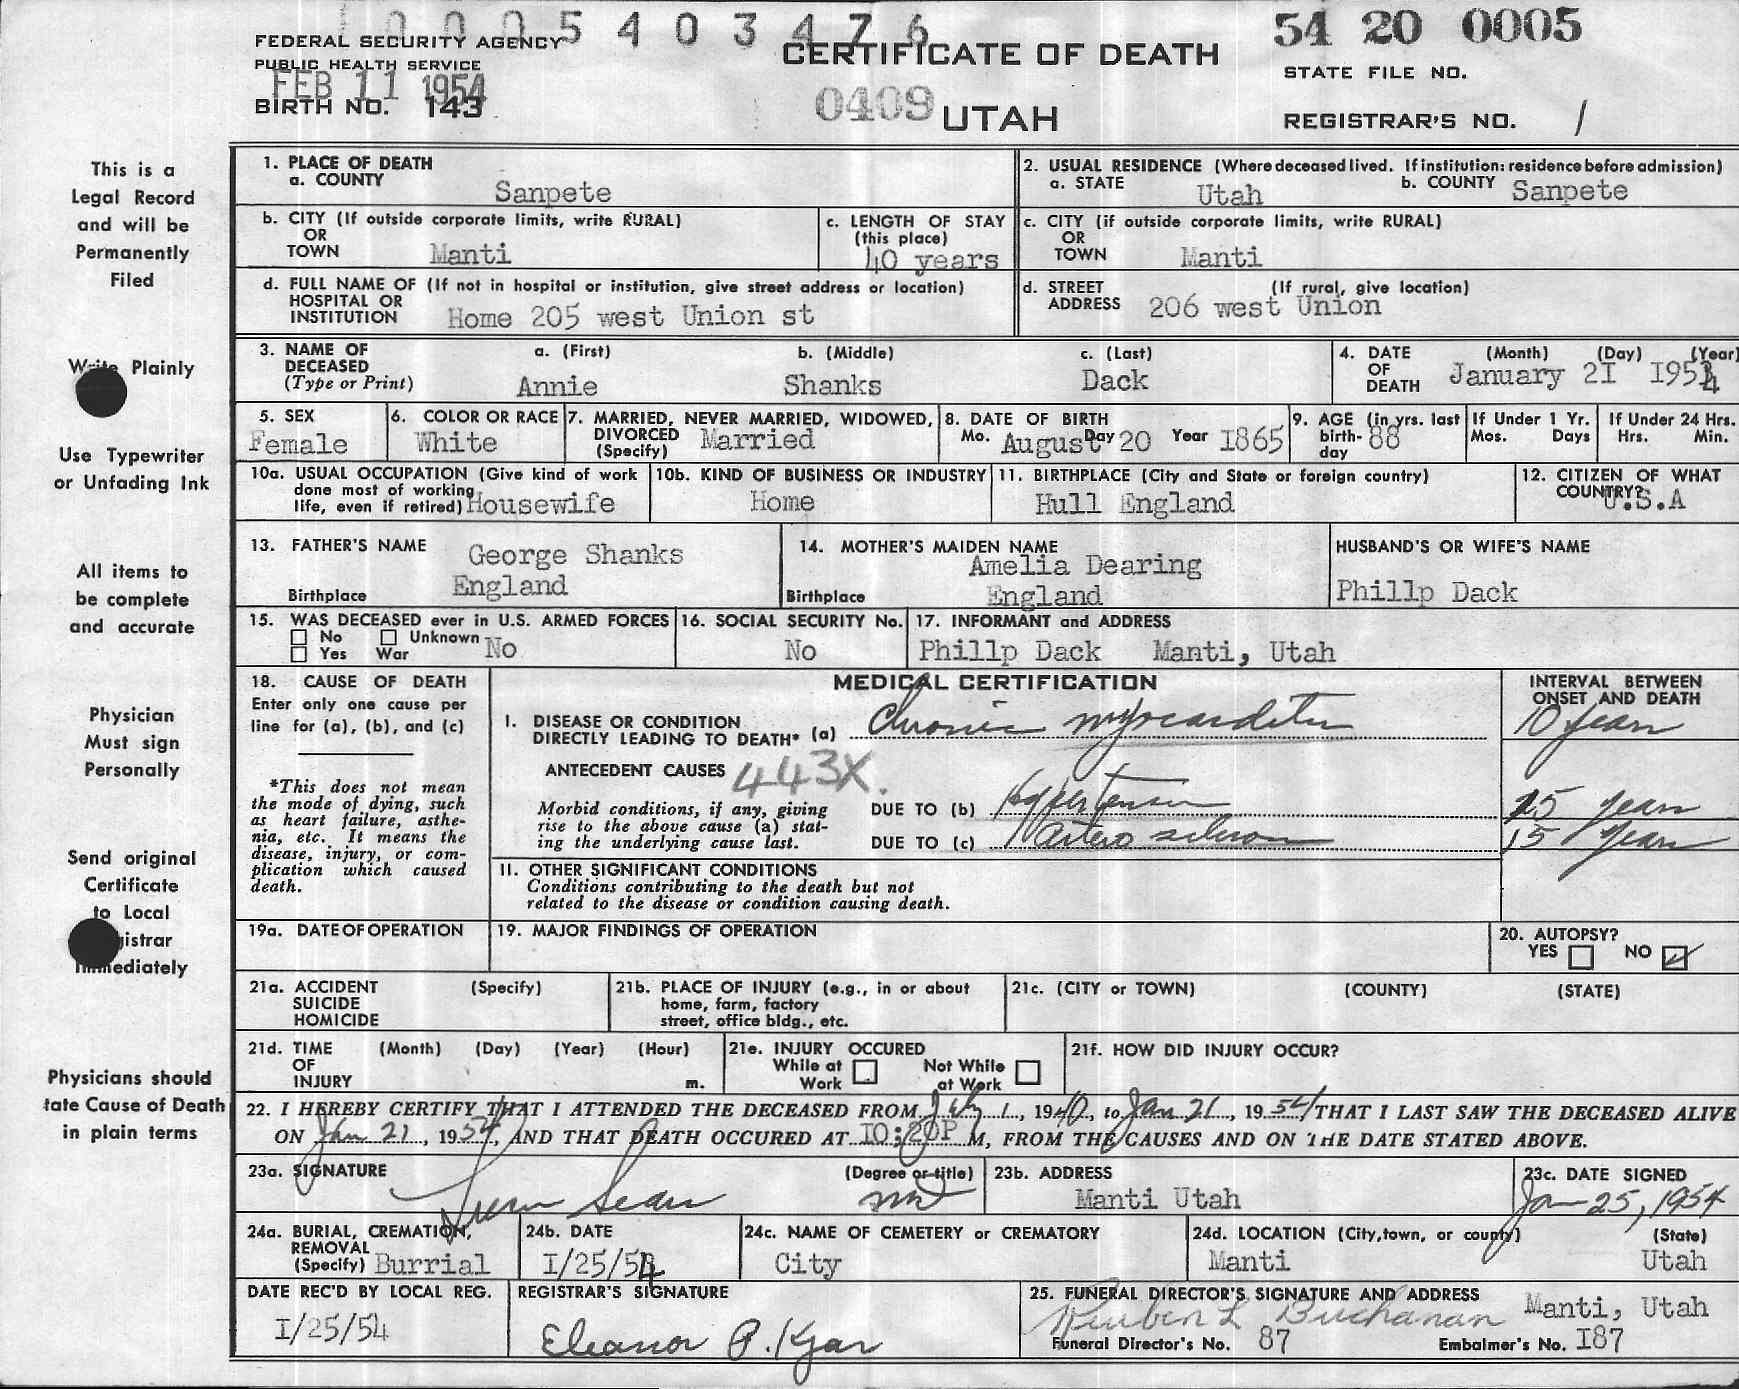 0005403476
54 20 0005
FEDERAL SECURITY AGENCY
PUBLIC HEALTH SERVICE
CERTIFICATE OF DEATH
STATE FILE NO.
FEB 11 1954
BIRTH NO. 143
0409
UTAH
REGISTRAR'S NO. 1
This is a
Legal Record
and will be
Permanently
Filed
Write Plainly
Use Typewriter
or Unfading Ink
All items to
be complete
and accurate
Physician
Must sign
Personally
Send original
Certificate
to Local
istrar
Immediately
Physicians should
tate Cause of Death
in plain terms
1. PLACE OF DEATH
a. COUNTY
Sanpete
2. USUAL RESIDENCE (Where deceased lived. If institution: residence before admission)
a. STATE Utah b. COUNTY Sanpete
b. CITY (If outside corporate limits, write RURAL)
OR
TOWN Manti
c. LENGTH OF STAY
(this place)
40 years
c. CITY (if outside corporate limits, write RURAL)
OR
TOWN Manti
d. FULL NAME OF (If not in hospital or institution, give street address or location)
HOSPITAL OR
INSTITUTION Home 205 west Union st
d. STREET (If rural, give location)
ADDRESS 206 west Union
3. NAME OF a. (First) b. (Middle) c. (Last)
DECEASED
(Type or Print) Annie Shanks Dack
4. DATE (Month) (Day) (Year)
OF
DEATH January 2I I954
5. SEX
Female
6. COLOR OR RACE
White
7. MARRIED, NEVER MARRIED, WIDOWED,
DIVORCED
(Specify) Married
8. DATE OF BIRTH
Mo. August Day 20 Year I865
9. AGE (in yrs. last
birth- 88
day
If Under 1 Yr.
Mos. Days
If Under 24 Hrs.
Hrs. Min.
10a. USUAL OCCUPATION (Give kind of work
done most of working
life, even if retired) Housewife
10b. KIND OF BUSINESS OR INDUSTRY
Home
11. BIRTHPLACE (City and State or foreign country)
Hull England
12. CITIZEN OF WHAT
COUNTRY?
U.S.A
13. FATHER'S NAME George Shanks
Birthplace England
14. MOTHER'S MAIDEN NAME
Amelia Dearing
Birthplace England
HUSBAND'S OR WIFE'S NAME
Phillp Dack
15. WAS DECEASED ever in U.S. ARMED FORCES
No Unknown
Yes War No
16. SOCIAL SECURITY No.
No
17. INFORMANT and ADDRESS
Phillp Dack Manti, Utah
18. CAUSE OF DEATH
Enter only one cause per
line for (a), (b), and (c)
*This does not mean
the mode of dying, such
as heart failure, asthe-
nia, etc. It means the
disease, injury, or com-
plication which caused
death.
MEDICAL CERTIFICATION
INTERVAL BETWEEN
ONSET AND DEATH
I. DISEASE OR CONDITION
DIRECTLY LEADING TO DEATH* (a) Chronic myocarditis 10 years
ANTECEDENT CAUSES 443X.
Morbid conditions, if any, giving
rise to the above cause (a) stat-
ing the underlying cause last.
DUE TO (b) Hypertension 15 years
DUE TO (c) Artero scleros 15 years
II. OTHER SIGNIFICANT CONDITIONS
Conditions contributing to the death but not
related to the disease or condition causing death.
19a. DATE OF OPERATION
19. MAJOR FINDINGS OF OPERATION
20. AUTOPSY?
YES NO
21a. ACCIDENT (Specify)
SUICIDE
HOMICIDE
21b. PLACE OF INJURY (e.g., in or about
home, farm, factory
street, office bldg., etc.
21c. (CITY or TOWN) (COUNTY) (STATE)
21d. TIME (Month) (Day) (Year) (Hour)
OF
INJURY m.
21e. INJURY OCCURED
While at Not While
Work at Work
21f. HOW DID INJURY OCCUR?
22. I HEREBY CERTIFY THAT I ATTENDED THE DECEASED FROM 1, 1940, to Jan 21, 1954 THAT I LAST SAW THE DECEASED ALIVE
ON Jan 21, 1954, AND THAT DEATH OCCURED AT I0:20P M, FROM THE CAUSES AND ON THE DATE STATED ABOVE.
23a. SIGNATURE (Degree or title)
Sears MD
23b. ADDRESS
Manti Utah
23c. DATE SIGNED
Jan 25, 1954
24a. BURIAL, CREMATION,
REMOVAL
(Specify) Burrial
24b. DATE
I/25/54
24c. NAME OF CEMETERY or CREMATORY
City
24d. LOCATION (City, town, or county) (State)
Manti Utah
DATE REC'D BY LOCAL REG.
I/25/54
REGISTRAR'S SIGNATURE
Eleanor P. Kjar
25. FUNERAL DIRECTOR'S SIGNATURE AND ADDRESS
Reuben L Buchanan Manti, Utah
Funeral Director's No. 87 Embalmer's No. I87